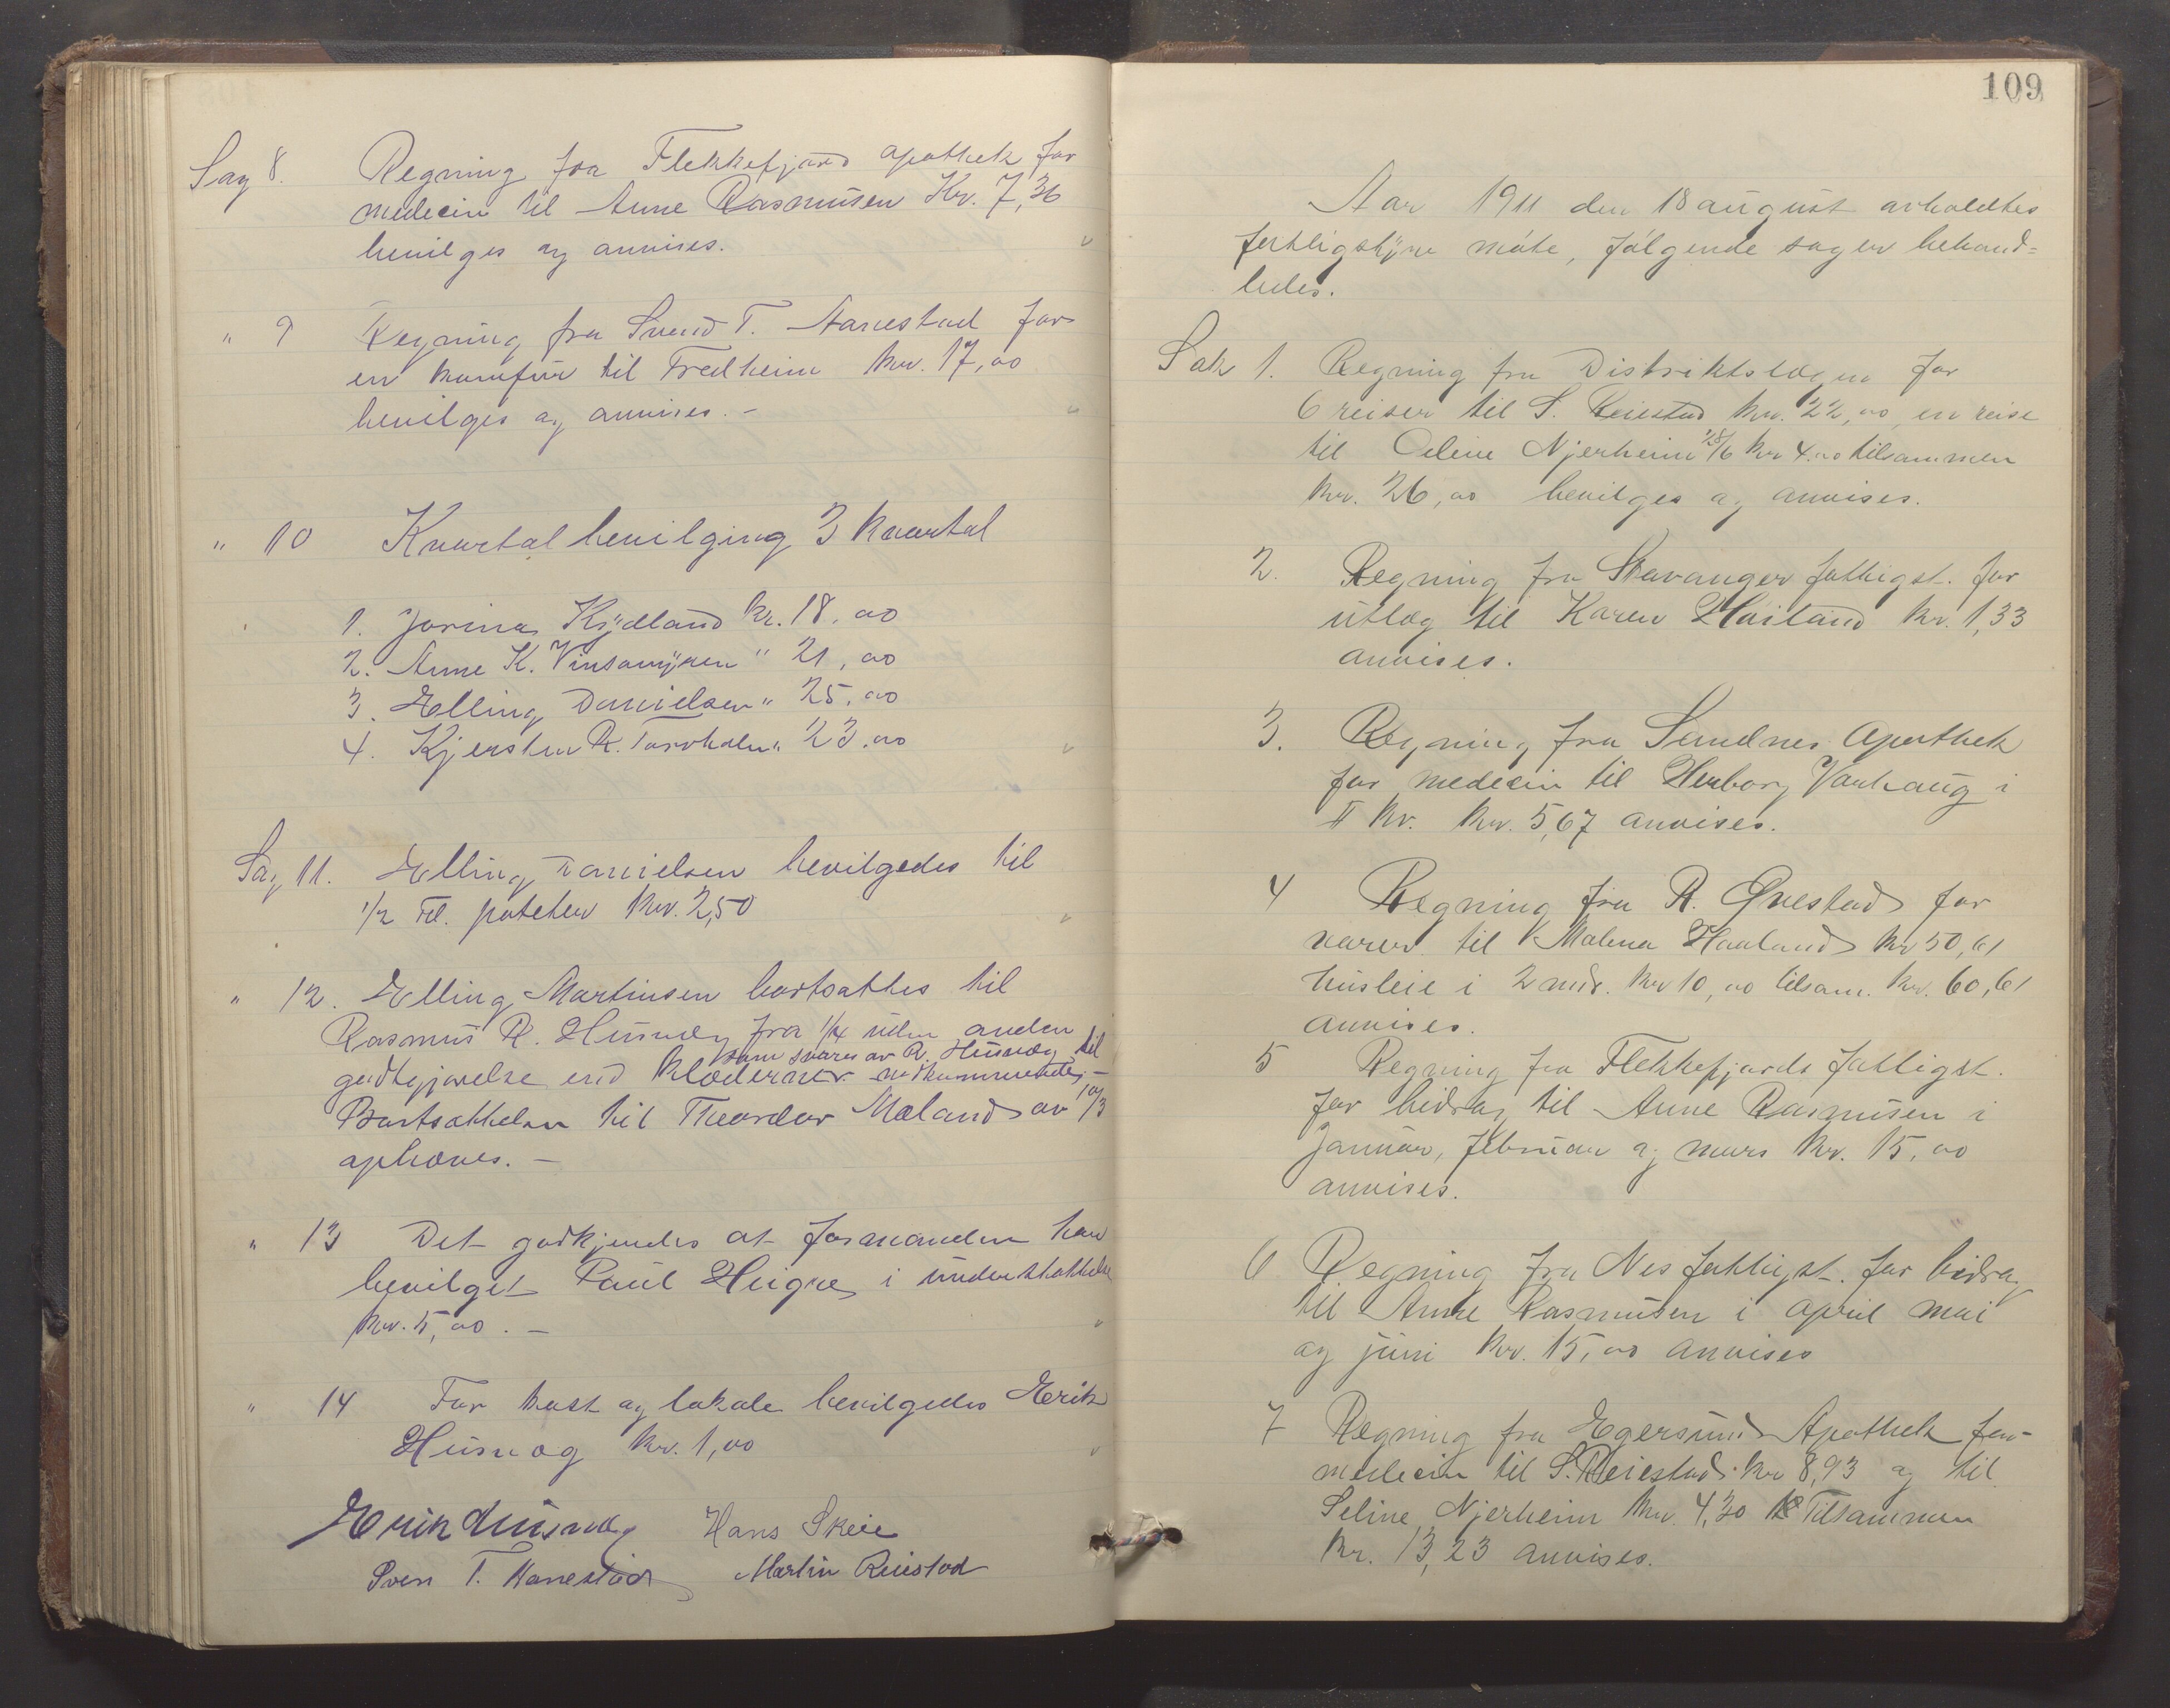 Sag 8. Regning fra Flekkefjord apothek for
medecin til Anne Rasmusen Kr. 7,36
bevilges og anvises.
" 9 Regning fra Svend T. Aanestad for
en komfur til Fredheim kr. 17,00
bevilges og anvises. -
" 10 Kvartal bevilging 3 kvartal
1. Jorina Kydland kr. 18,00
2. Anne K. Vinsamyren " 21,00
3. Elling Danielsen " 25,00
4. Kjersten R. " 23,00
Sag 11. Elling Danielsen bevilgedes til
1/2 Td. poteter kr. 2,50
" 12. Elling Martinsen bortsattes til
Rasmus R. Husvæg fra 1/4 uden anden
som svares av R. Husvæg til
godtgjørelse end klæderne
Bortsættelsen til Theordor Mæland av 10/3
ophæves. -
" 13 Det godkjendes at formanden har
bevilget Paul Heigre i understøttelse
kr. 5,00. -
" 14 For kost og lokale bevilgedes Erik
Husvæg kr. 1,00
Erik Husvæg Hans Skeie
Sven T. Aanestad Martin Reiestad
109
Aar 1911 den 18 august avholdtes
fattigstyre møte, følgende sager behand=
ledes.
Sak 1. Regning fra Distriktslægen for
6 reiser til S. Reiestad kr. 22,00 en reise
til Oline Njerheim 28/6 kr 4.00 tilsammen
kr. 26,00 bevilges og anvises.
2. Regning fra Stavanger fattigst. for
utlæg til Karen Høiland kr. 1,33
anvises.
3. Regning fra Sandnes Apothek
for medecin til Herborg Varhaug i
II kv. kr. 5,67 anvises.
4 Regning fra R. Qvestad for
varer til Malena Haaland kr 50,61
husleie i 2 mdr. kr 10,00 tilsam. kr. 60,61
anvises.
5 Regning fra Flekkefjords fattigst.
for bidrag til Anne Rasmusen i
Januar, februar og mars kr. 15,00
anvises.
6 Regning fra Nes fattigst. for bidrag
til Anne Rasmusen i april mai
og juni kr. 15,00 anvises
7 Regning fra Egersund Apothek for
medecin til S. Reiestad kr 8,93 og til
Seline Njerheim kr. 4,30 Tilsammen
kr. 13,23 anvises.